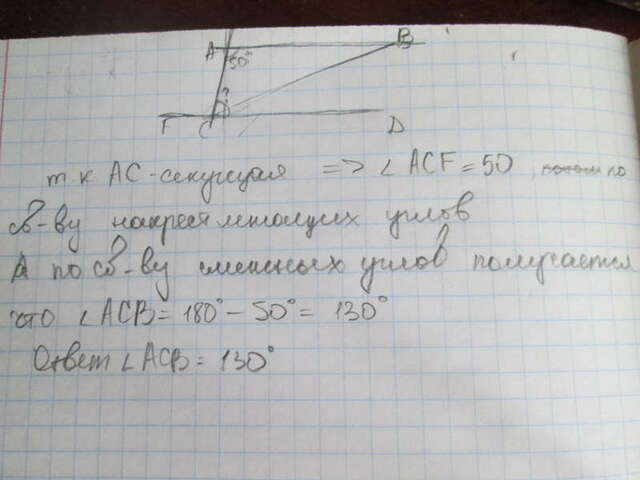 A B
50°
?
F C D
т к АС - секущая => ∠ACF = 50 по
св-ву накрест лежащих углов
А по св-ву смежных углов получается
что ∠ACB = 180° - 50° = 130°
Ответ ∠ACB = 130°